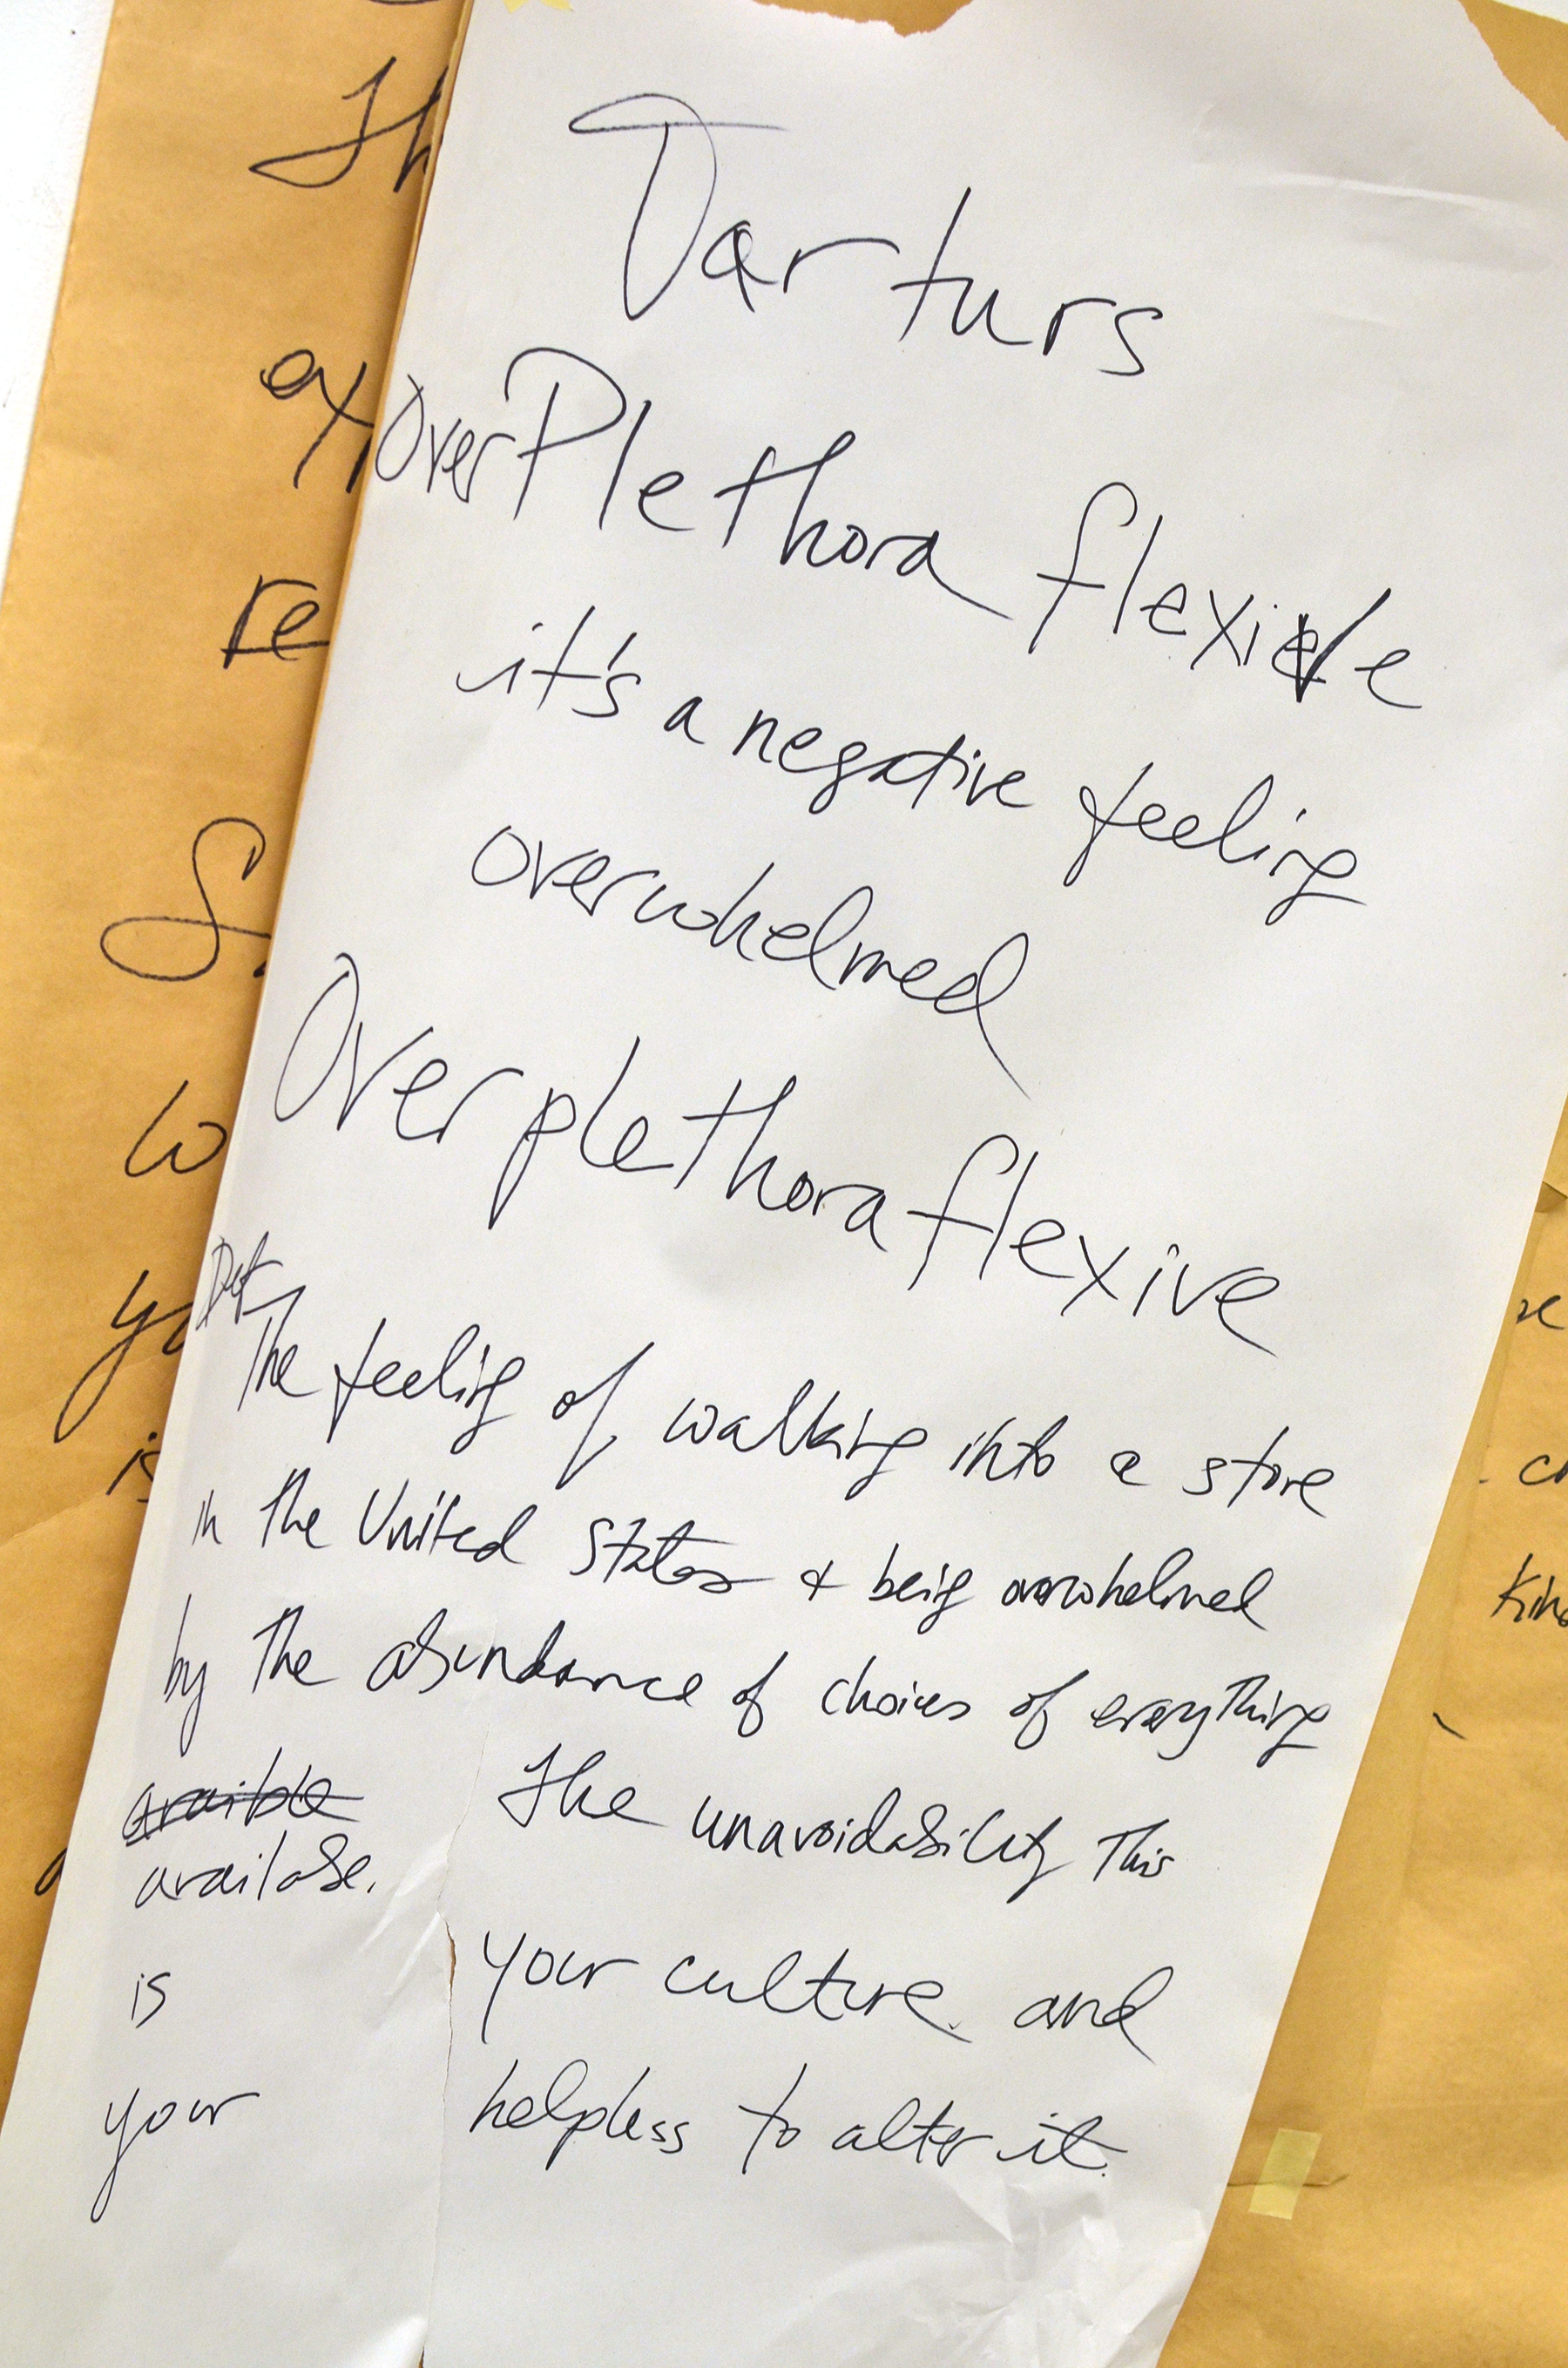 Tarturs
OverPlethora flexive
it's a negative feeling
overwhelmed
Overplethoraflexive
Def
The feeling of walking into a store
in the United States & being overwhelmed
by the abundance of choices of everything
avaible The unavoidability This
available.
is your culture. and
your helpless to alter it.
Th
re
S
w
yo
is
Kin